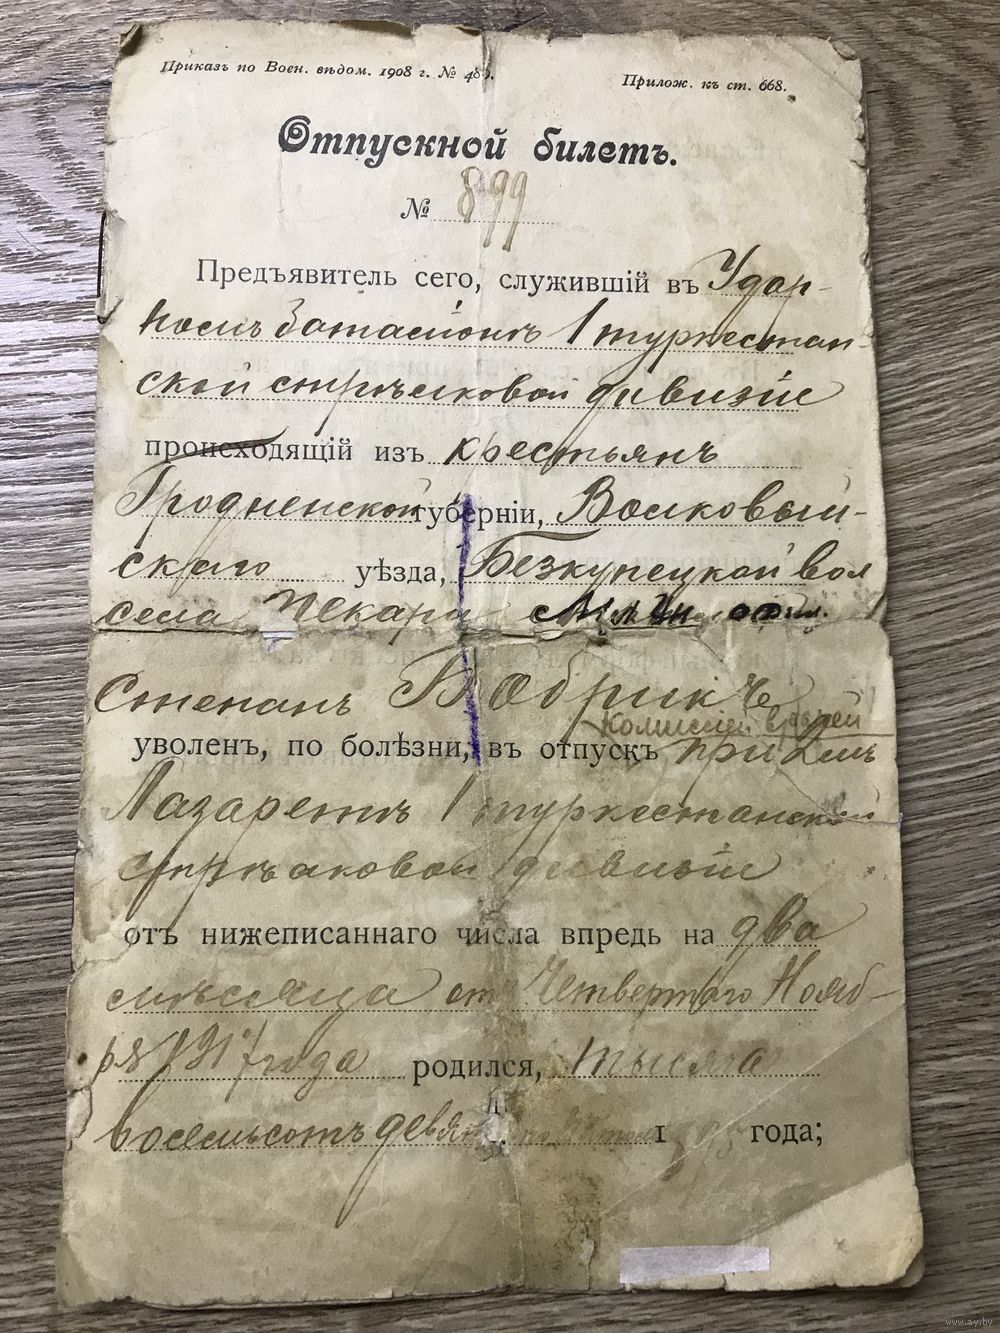 Приказъ по Воен. вѣдом. 1908 г. № 48
Прилож. къ ст. 668.
Отпускной билетъ.
№ 899
Предъявитель сего, служившій въ Удар-
номъ баталіонѣ 1 туркестан-
ской стрѣлковой дивизіи
происходящій изъ крестьянъ
Гродненской губерніи, Волковый-
скаго уѣзда, вол
села Пекари
Степанъ Бобрикъ
Комиссіей врачей
уволенъ, по болѣзни, въ отпускъ при
Лазаретѣ 1 туркестанской
стрѣлковой дивизіи
отъ нижеписаннаго числа впредь на два
мѣсяца отъ Четвертого Нояб-
ря 1917 года родился, тысяча
восемьсотъ 1 года;
www.ay.by